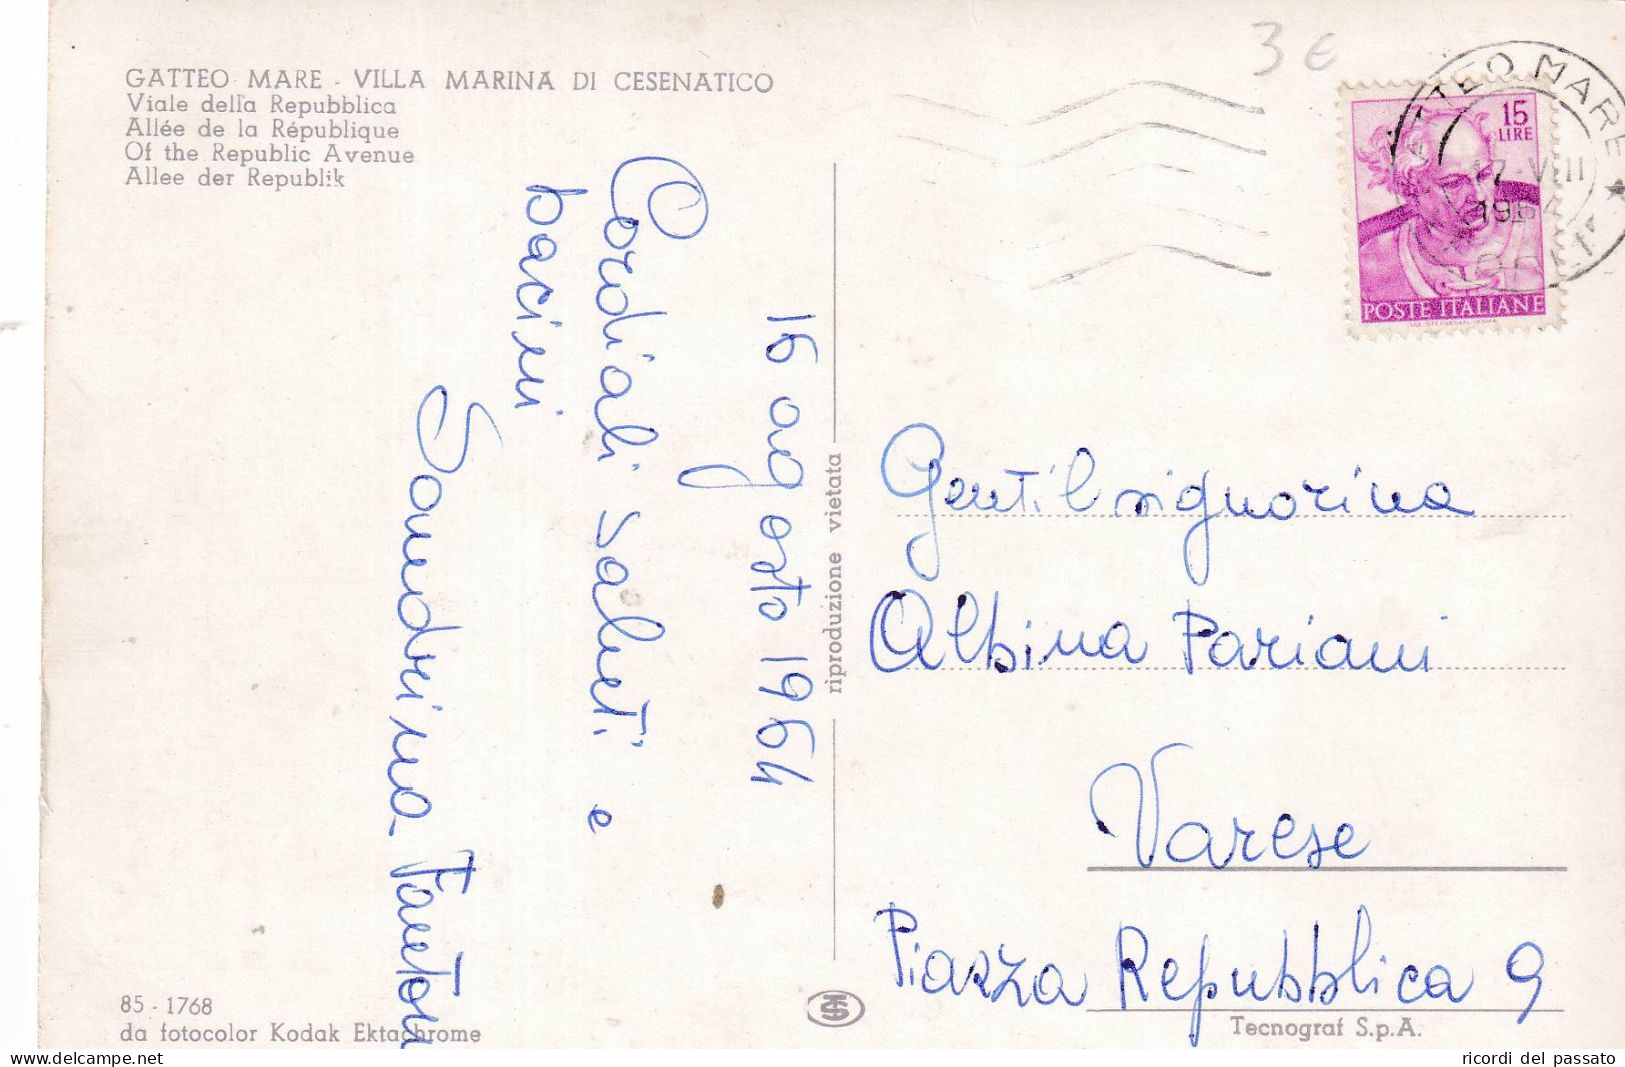 GATTEO MARE - VILLA MARINA DI CESENATICO
Viale della Repubblica
Allée de la République
Of the Republic Avenue
Allee der Republik
3 e
15
LIRE
POSTE ITALIANE
GATTEO MARE
17-VIII
1964
16 agosto 1964
Cordiali saluti e
bacini
Sandrina Fantoni
riproduzione vietata
Gentil signorina
Albina Pariani
Varese
Piazza Repubblica 9
85 - 1768
da fotocolor Kodak Ektachrome
Tecnograf S.p.A.
delcampe.net
ricordi del passato